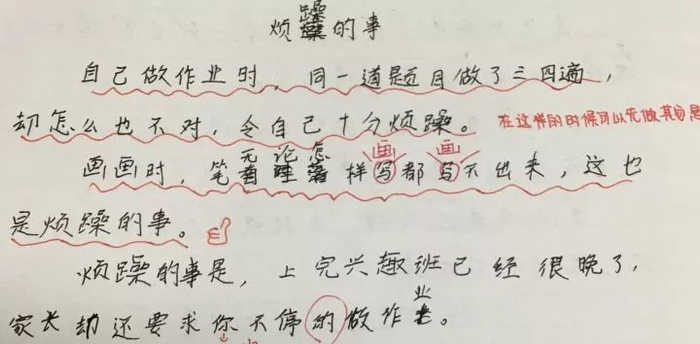 烦躁的事
自己做作业时，同一道题目做了三四遍，
却怎么也不对，令自己十分烦躁。
在这样的时候可以先做其
画画时，笔无论怎样写都写不出来，这也
画 画
是烦躁的事。
烦躁的事是，上完兴趣班已经很晚了，
家长却还要求你不停的做作业。